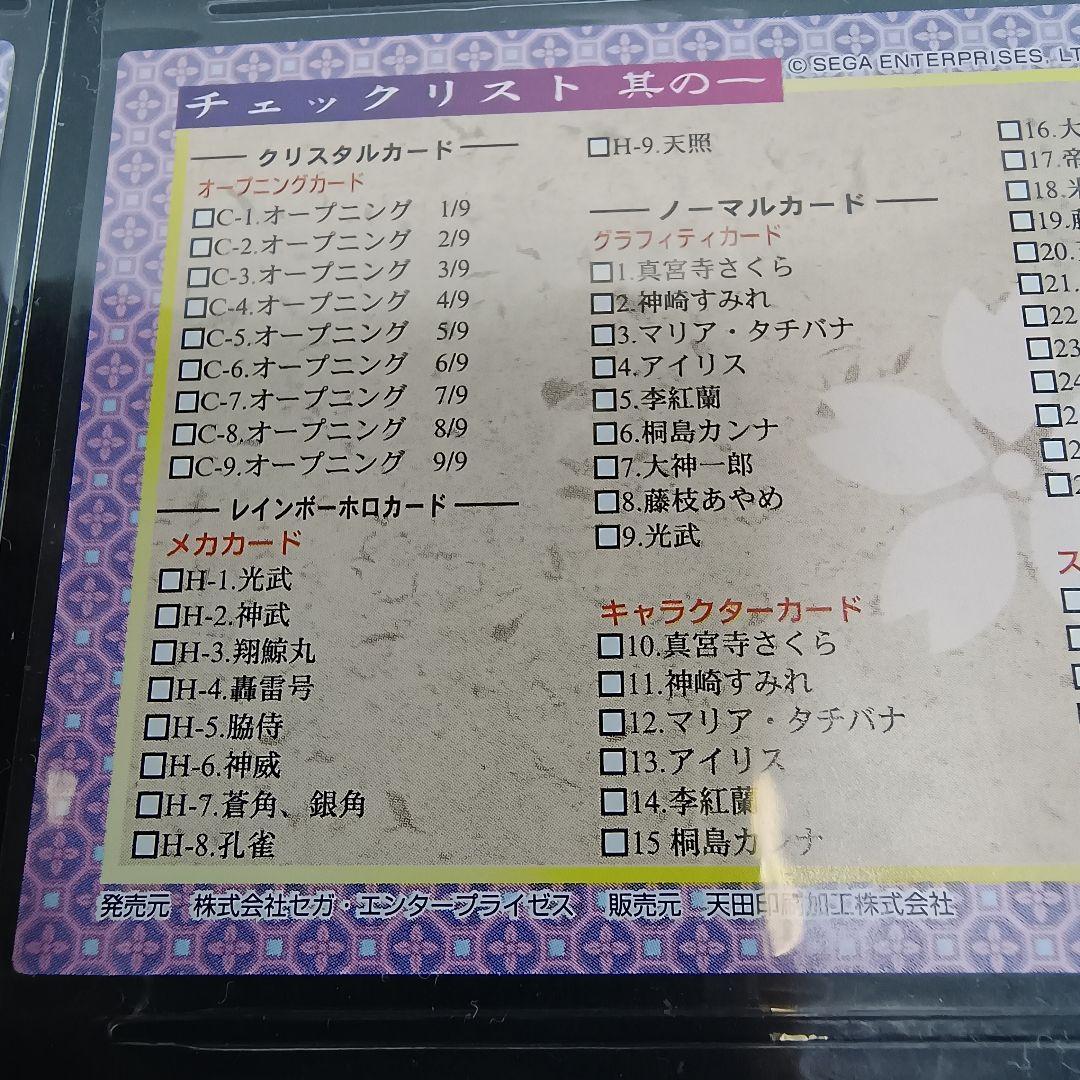 © SEGA ENTERPRISES, LT
チェックリスト 其の一
クリスタルカード
オープニングカード
□C-1.オープニング 1/9
□C-2.オープニング 2/9
□C-3.オープニング 3/9
□C-4.オープニング 4/9
□C-5.オープニング 5/9
□C-6.オープニング 6/9
□C-7.オープニング 7/9
□C-8.オープニング 8/9
□C-9.オープニング 9/9
レインボーホロカード
メカカード
□H-1.光武
□H-2.神武
□H-3.翔鯨丸
□H-4.轟雷号
□H-5.脇侍
□H-6.神威
□H-7.蒼角、銀角
□H-8.孔雀
□H-9.天照
ノーマルカード
グラフィティカード
□1.真宮寺さくら
□2.神崎すみれ
□3.マリア・タチバナ
□4.アイリス
□5.李紅蘭
□6.桐島カンナ
□7.大神一郎
□8.藤枝あやめ
□9.光武
キャラクターカード
□10.真宮寺さくら
□11.神崎すみれ
□12.マリア・タチバナ
□13.アイリス
□14.李紅蘭
□15 桐島カンナ
□16.大
□17.帝
□18.
□19.藤
□20.
□21.
□22.
□23
□24
ス
発売元 株式会社セガ・エンタープライゼス 販売元 天田印刷加工株式会社